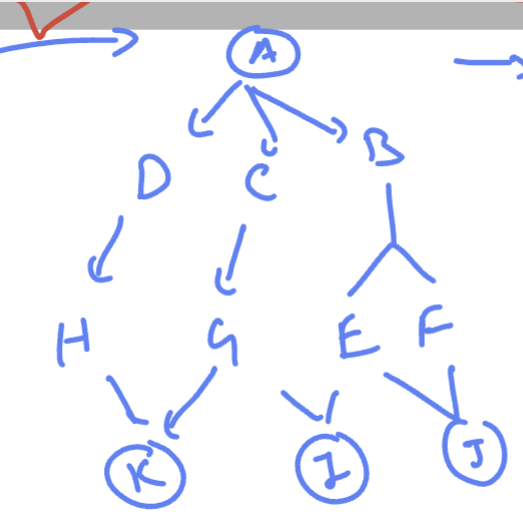 A
D C B
H G E F
K I J